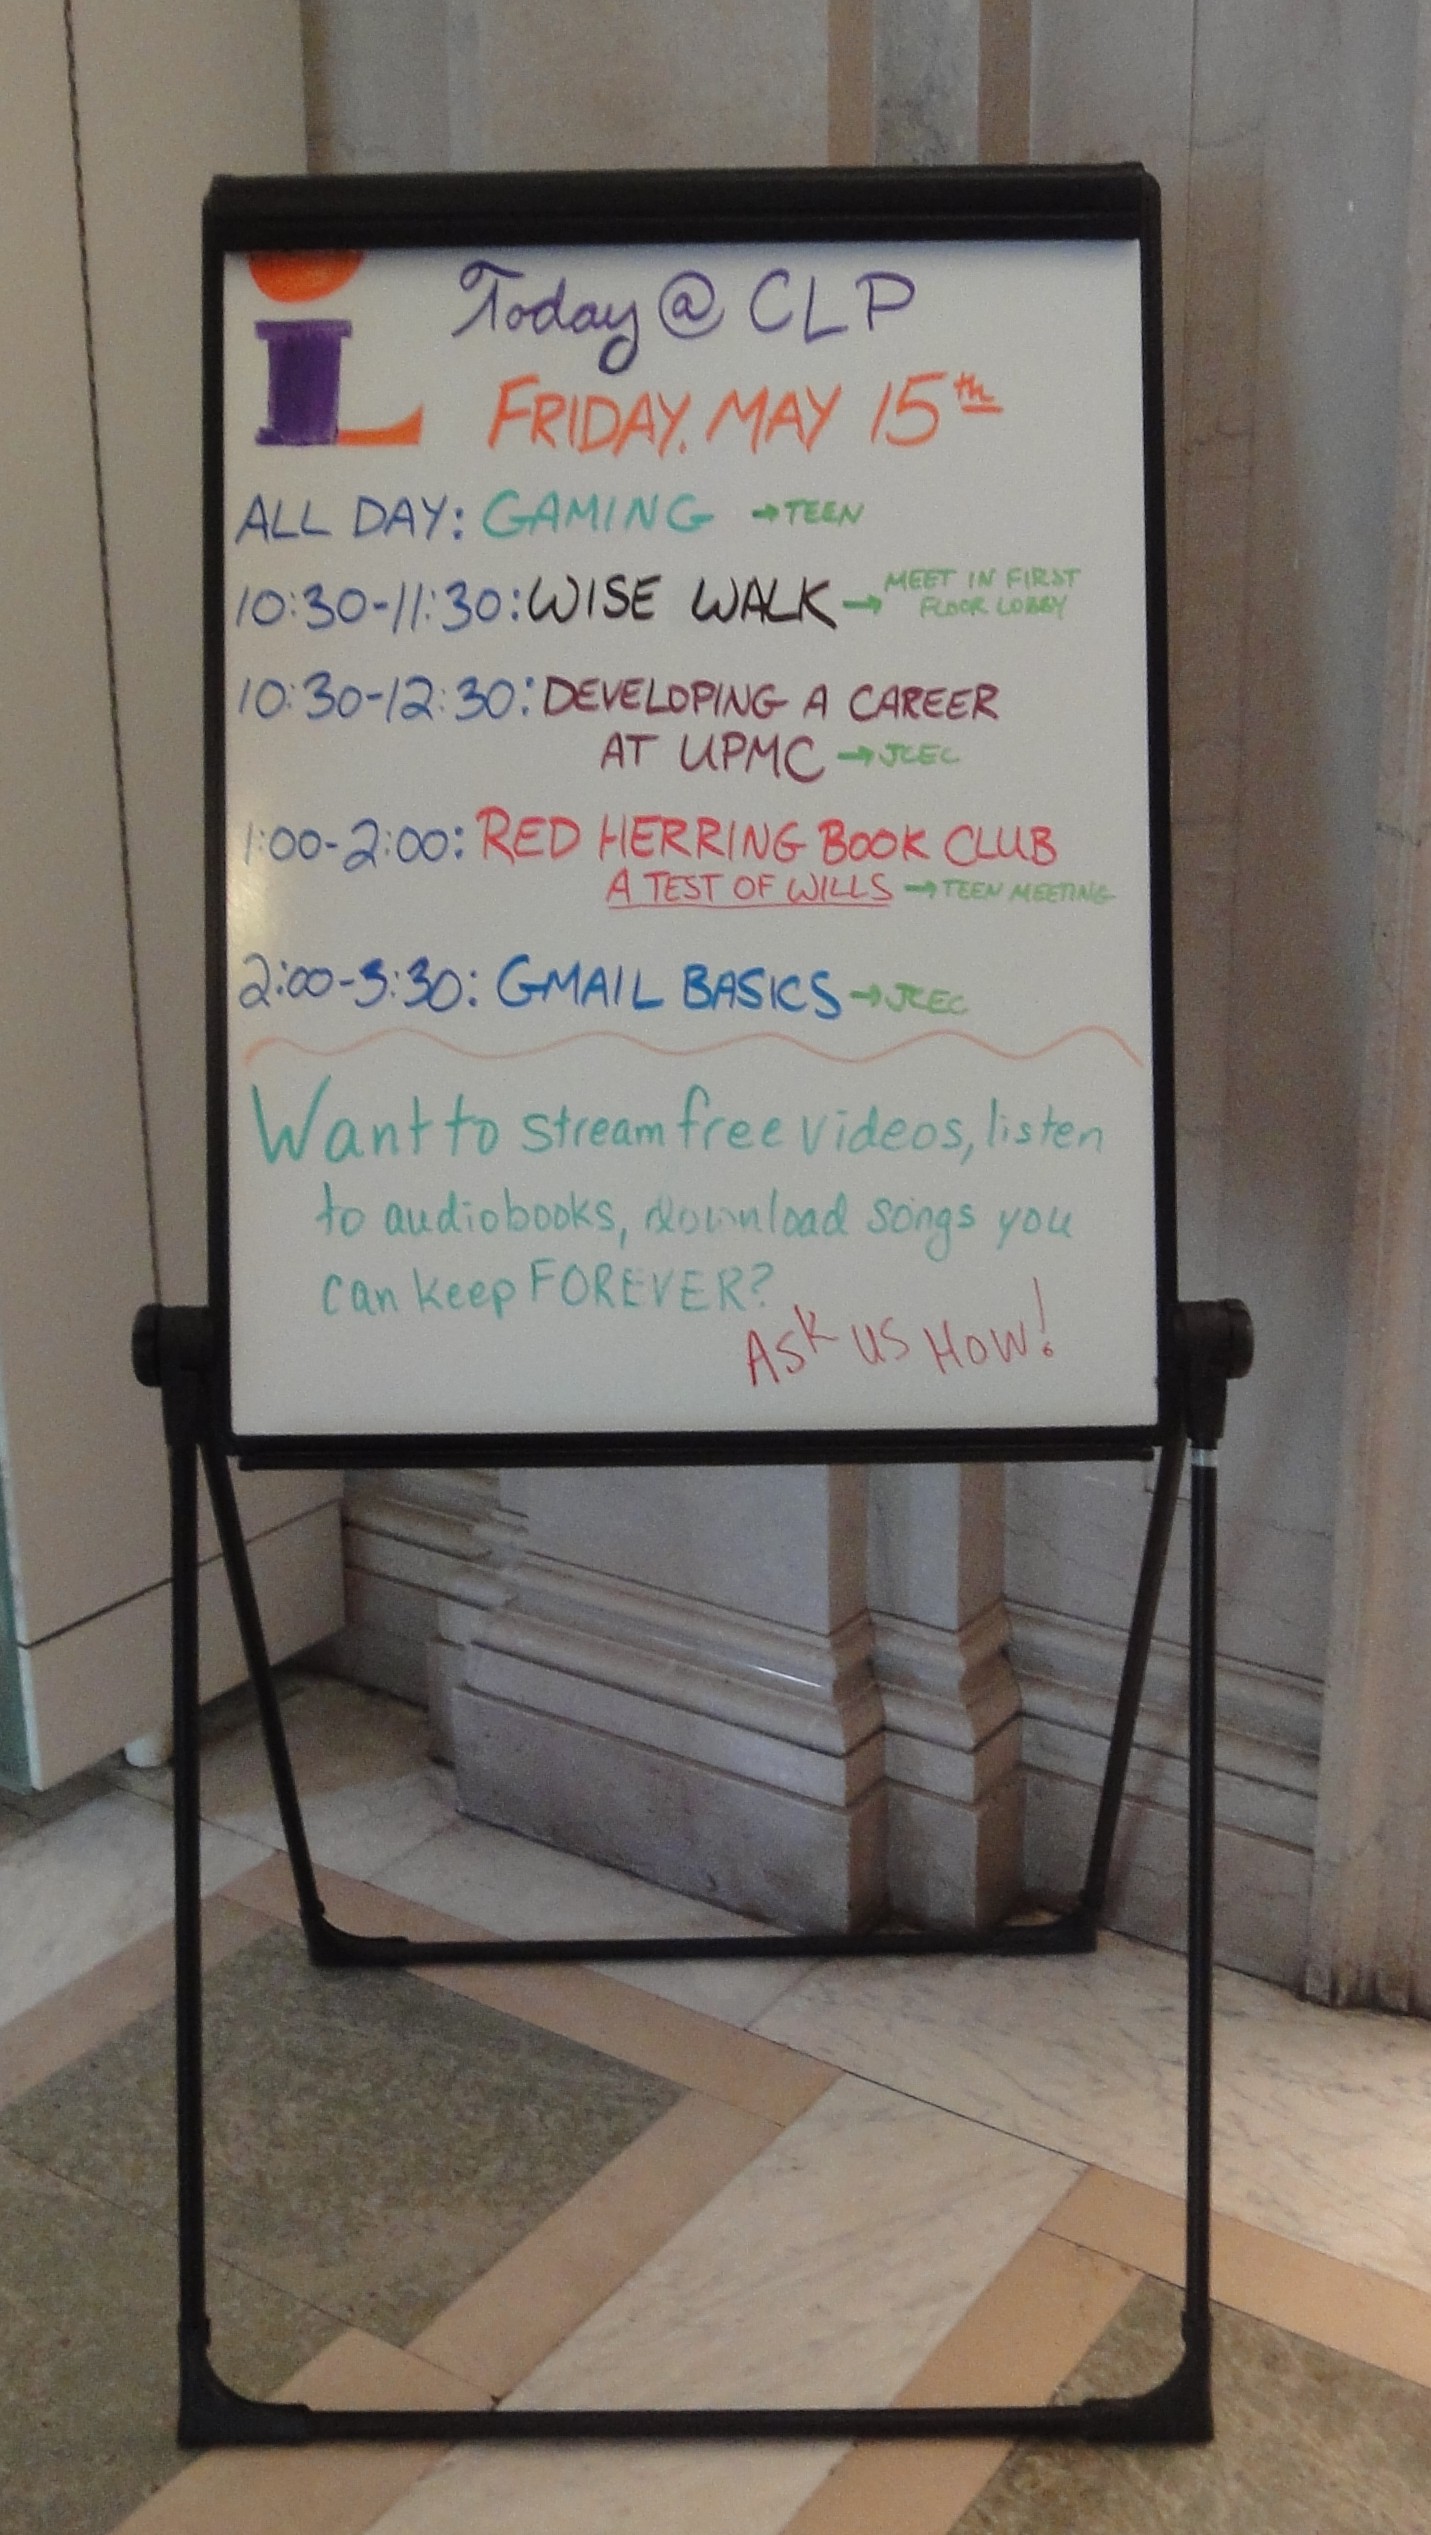 iL Today @ CLP
FRIDAY, MAY 15th
ALL DAY: GAMING → TEEN
10:30-11:30: WISE WALK → MEET IN FIRST
FLOOR LOBBY
10:30-12:30: DEVELOPING A CAREER
AT UPMC → JCEC
1:00-2:00: RED HERRING BOOK CLUB
A TEST OF WILLS → TEEN MEETING
2:00-3:30: GMAIL BASICS → JCEC
Want to stream free videos, listen
to audiobooks, download songs you
can keep FOREVER?
ASK US HOW!